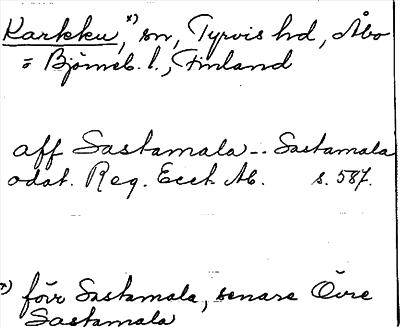 Karkku,*) sn, Tyrvis hd, Åbo
o Björneb. l., Finland
aff Sastamala -- Sastamala
odat. Reg. Eccl. Ab. s. 587.
*) förr Sastamala, senare Övre
Sastamala